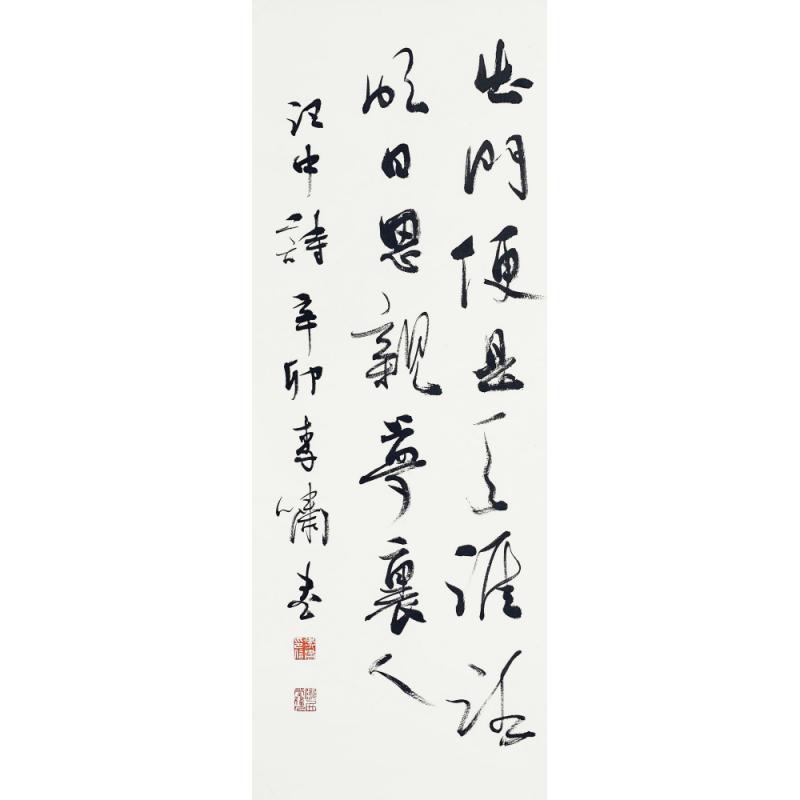 出門便是天涯路
日思親夢裏人
汪中詩 辛卯 李嘯書